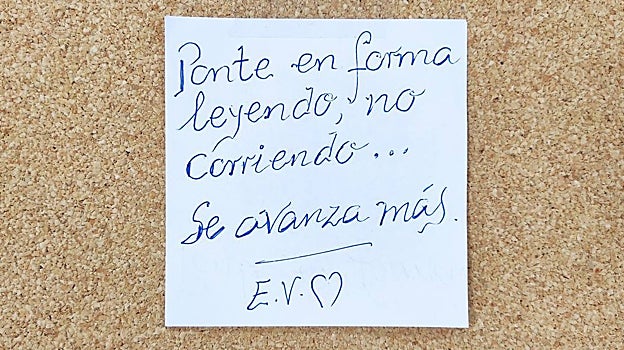 Ponte en forma
leyendo, no
corriendo...
Se avanza más.
E.V.♡